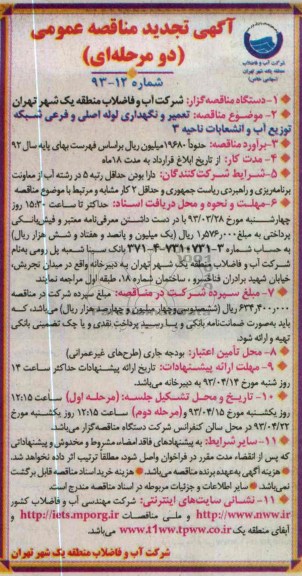 آگهی تجدید مناقصه عمومی
(دو مرحله‌ای)
شماره ۱۲-۹۳
شرکت آب و فاضلاب
منطقه یک شهر تهران
(سهامی خاص)
۱- دستگاه مناقصه‌گزار: شرکت آب و فاضلاب منطقه یک شهر تهران
۲- موضوع مناقصه: تعمیر و نگهداری لوله اصلی و فرعی شبکه
توزیع آب و انشعابات ناحیه ۳
۳- برآورد مناقصه: حدوداً ۱۹۶۸۰ میلیون ریال براساس فهرست بهای پایه سال ۹۲
۴- مدت کار: از تاریخ ابلاغ قرارداد به مدت ۱۸ ماه
۵- شرایط شرکت‌کنندگان: دارا بودن حداقل رتبه ۵ در رشته آب از معاونت
برنامه‌ریزی و راهبردی ریاست جمهوری و حداقل ۲ کار مشابه و مرتبط با موضوع مناقصه
۶- مهلت و نحوه و محل دریافت اسناد: حداکثر تا ساعت ۱۵:۳۰ روز
چهارشنبه مورخ ۹۳/۰۳/۲۸ با در دست داشتن معرفی‌نامه معتبر و فیش بانکی
پرداختی به مبلغ ۱,۵۷۶,۰۰۰ ریال (یک میلیون و پانصد و هفتاد و شش هزار ریال)
به حساب شماره ۳-۷۳۱۰۷۳۱-۴-۳۷۱ بانک سینا شعبه پل رومی به‌نام
شرکت آب و فاضلاب منطقه یک شهر تهران به دبیرخانه واقع در میدان تجریش،
خیابان شهید برادران فناخسرو، ساختمان شماره ۱۸، طبقه اول مراجعه نمایند.
۷- مبلغ سپرده شرکت در مناقصه: مبلغ سپرده شرکت در مناقصه
۶۳۴,۴۰۰,۰۰۰ ریال (ششصد و سی و چهار میلیون و چهارصد هزار ریال) می‌باشد، که
باید به‌صورت ضمانت‌نامه بانکی و یا رسید پرداخت نقدی و یا چک تضمینی بانکی
تهیه و ارائه شود.
۸- محل تأمین اعتبار: بودجه جاری (طرح‌های غیرعمرانی)
۹- مهلت ارائه پیشنهادات: تاریخ ارائه پیشنهادات حداکثر ساعت ۱۴
روز شنبه مورخ ۹۳/۰۴/۱۴ به دبیرخانه می‌باشد.
۱۰- تاریخ و محل تشکیل جلسه: (مرحله اول) ساعت ۱۲:۱۵
روز یکشنبه مورخ ۹۳/۰۴/۱۵ و (مرحله دوم) ساعت ۱۲:۱۵ روز یکشنبه مورخ
۹۳/۰۴/۲۲ در محل سالن کنفرانس شرکت دستگاه مناقصه‌گزار می‌باشد.
۱۱- سایر شرایط: به پیشنهادهای فاقد امضاء، مشروط و مخدوش و پیشنهاداتی
که پس از انقضاء مدت مقرر در فراخوان واصل شود، مطلقاً ترتیب اثر داده نخواهد شد.
هزینه آگهی به‌عهده برنده مناقصه می‌باشد. هزینه خرید اسناد مناقصه قابل برگشت
نمی‌باشد. سایر اطلاعات و جزئیات مربوطه در اسناد مناقصه مندرج است.
۱۱- نشانی سایت‌های اینترنتی: شرکت مهندسی آب و فاضلاب کشور
http://www.nww.ir و ملی مناقصات http://iets.mporg.ir و
آبفای منطقه یک www.t1ww.tpww.co.ir می‌باشد.
شرکت آب و فاضلاب منطقه یک شهر تهران